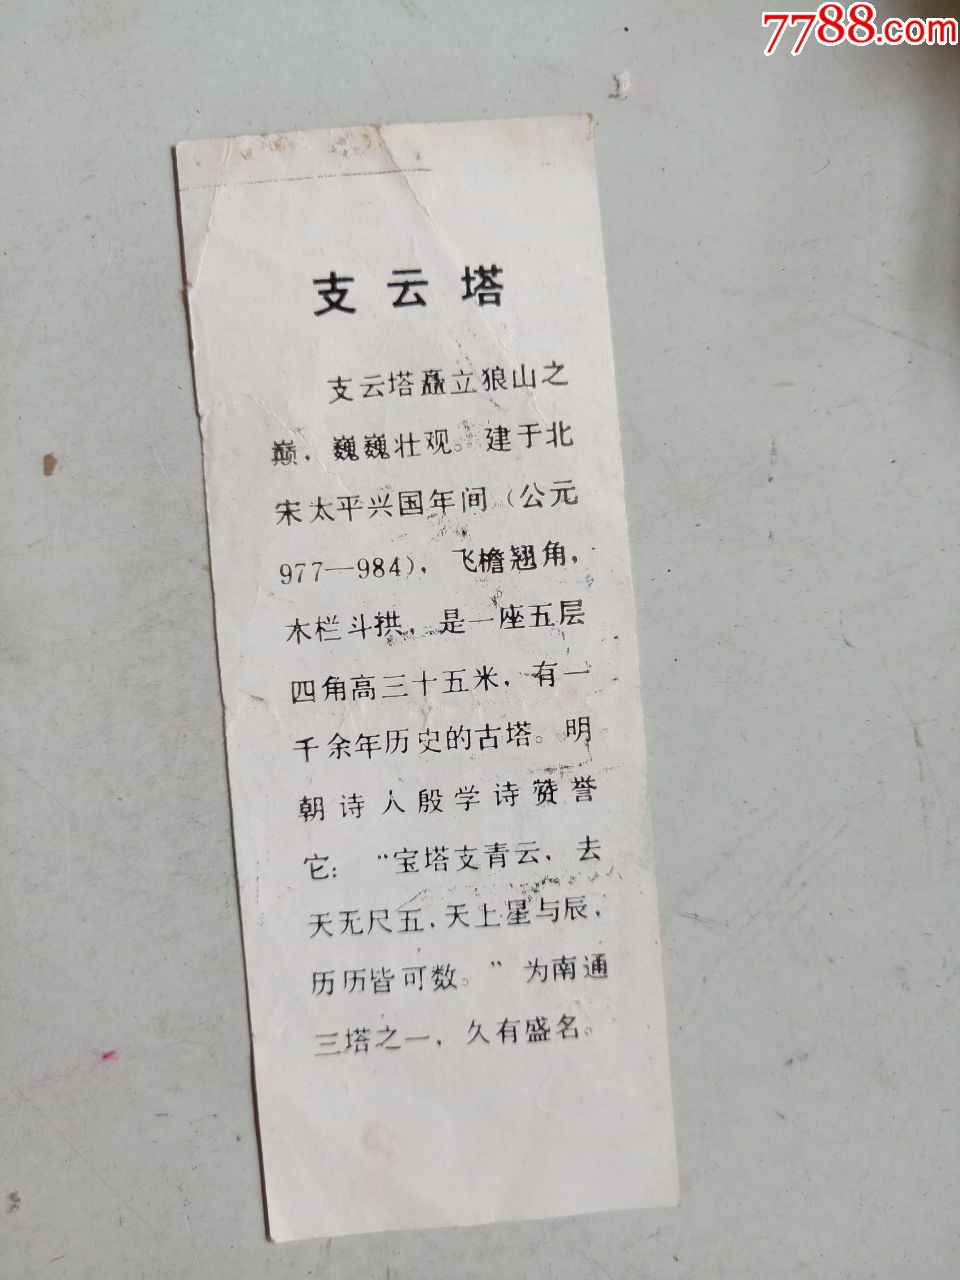 7788.com
支云塔
支云塔矗立狼山之
巅，巍巍壮观。建于北
宋太平兴国年间（公元
977—984），飞檐翘角，
木栏斗拱，是一座五层
四角高三十五米，有一
千余年历史的古塔。明
朝诗人殷学诗赞誉
它：“宝塔支青云，去
天无尺五，天上星与辰，
历历皆可数。”为南通
三塔之一，久有盛名。